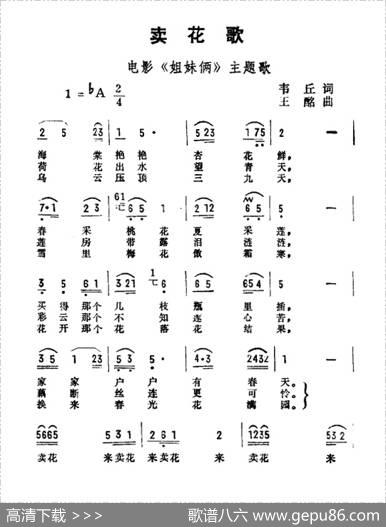 卖花歌
电影《姐妹俩》主题歌
1=♭A 2/4
韦丘 词
王酩 曲
2 5 23 1 5· 5 23 1 75 2 —
海棠艳艳 杏花鲜，
荷花出水 望青天，
乌云压顶 三九天，
7·1 2 3 6 5 1 2 6 5 —
春采桃花夏采莲，
莲房带露泪涟涟，
雪里梅花傲霜寒，
3 5 6 1 5 1 2 6· 6 5 1 2 654 5
买得那个几枝瓶里插，
彩云那个不知莲心苦，
花开那个花落花结果，
3 5 1 23 5 2 5 4·3 2432 1 —
家家户户有春天。
藕断丝连更可怜。
换来春光花满园。
5665 5 3 1 2 6 1 5 — 2 1235 5 532
卖花 来卖花 来卖花 卖花 来
高清下载 >>>
歌谱八六 www.gepu86.com